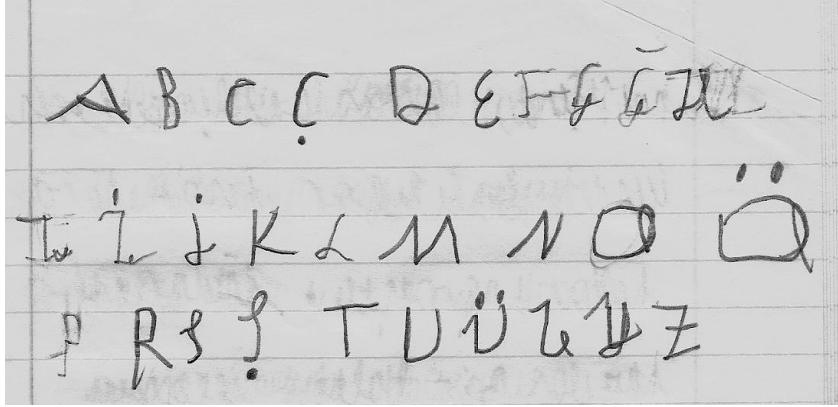 A B C Ç D E F G Ğ H
I İ J K L M N O Ö
P R S Ş T U Ü V Y Z